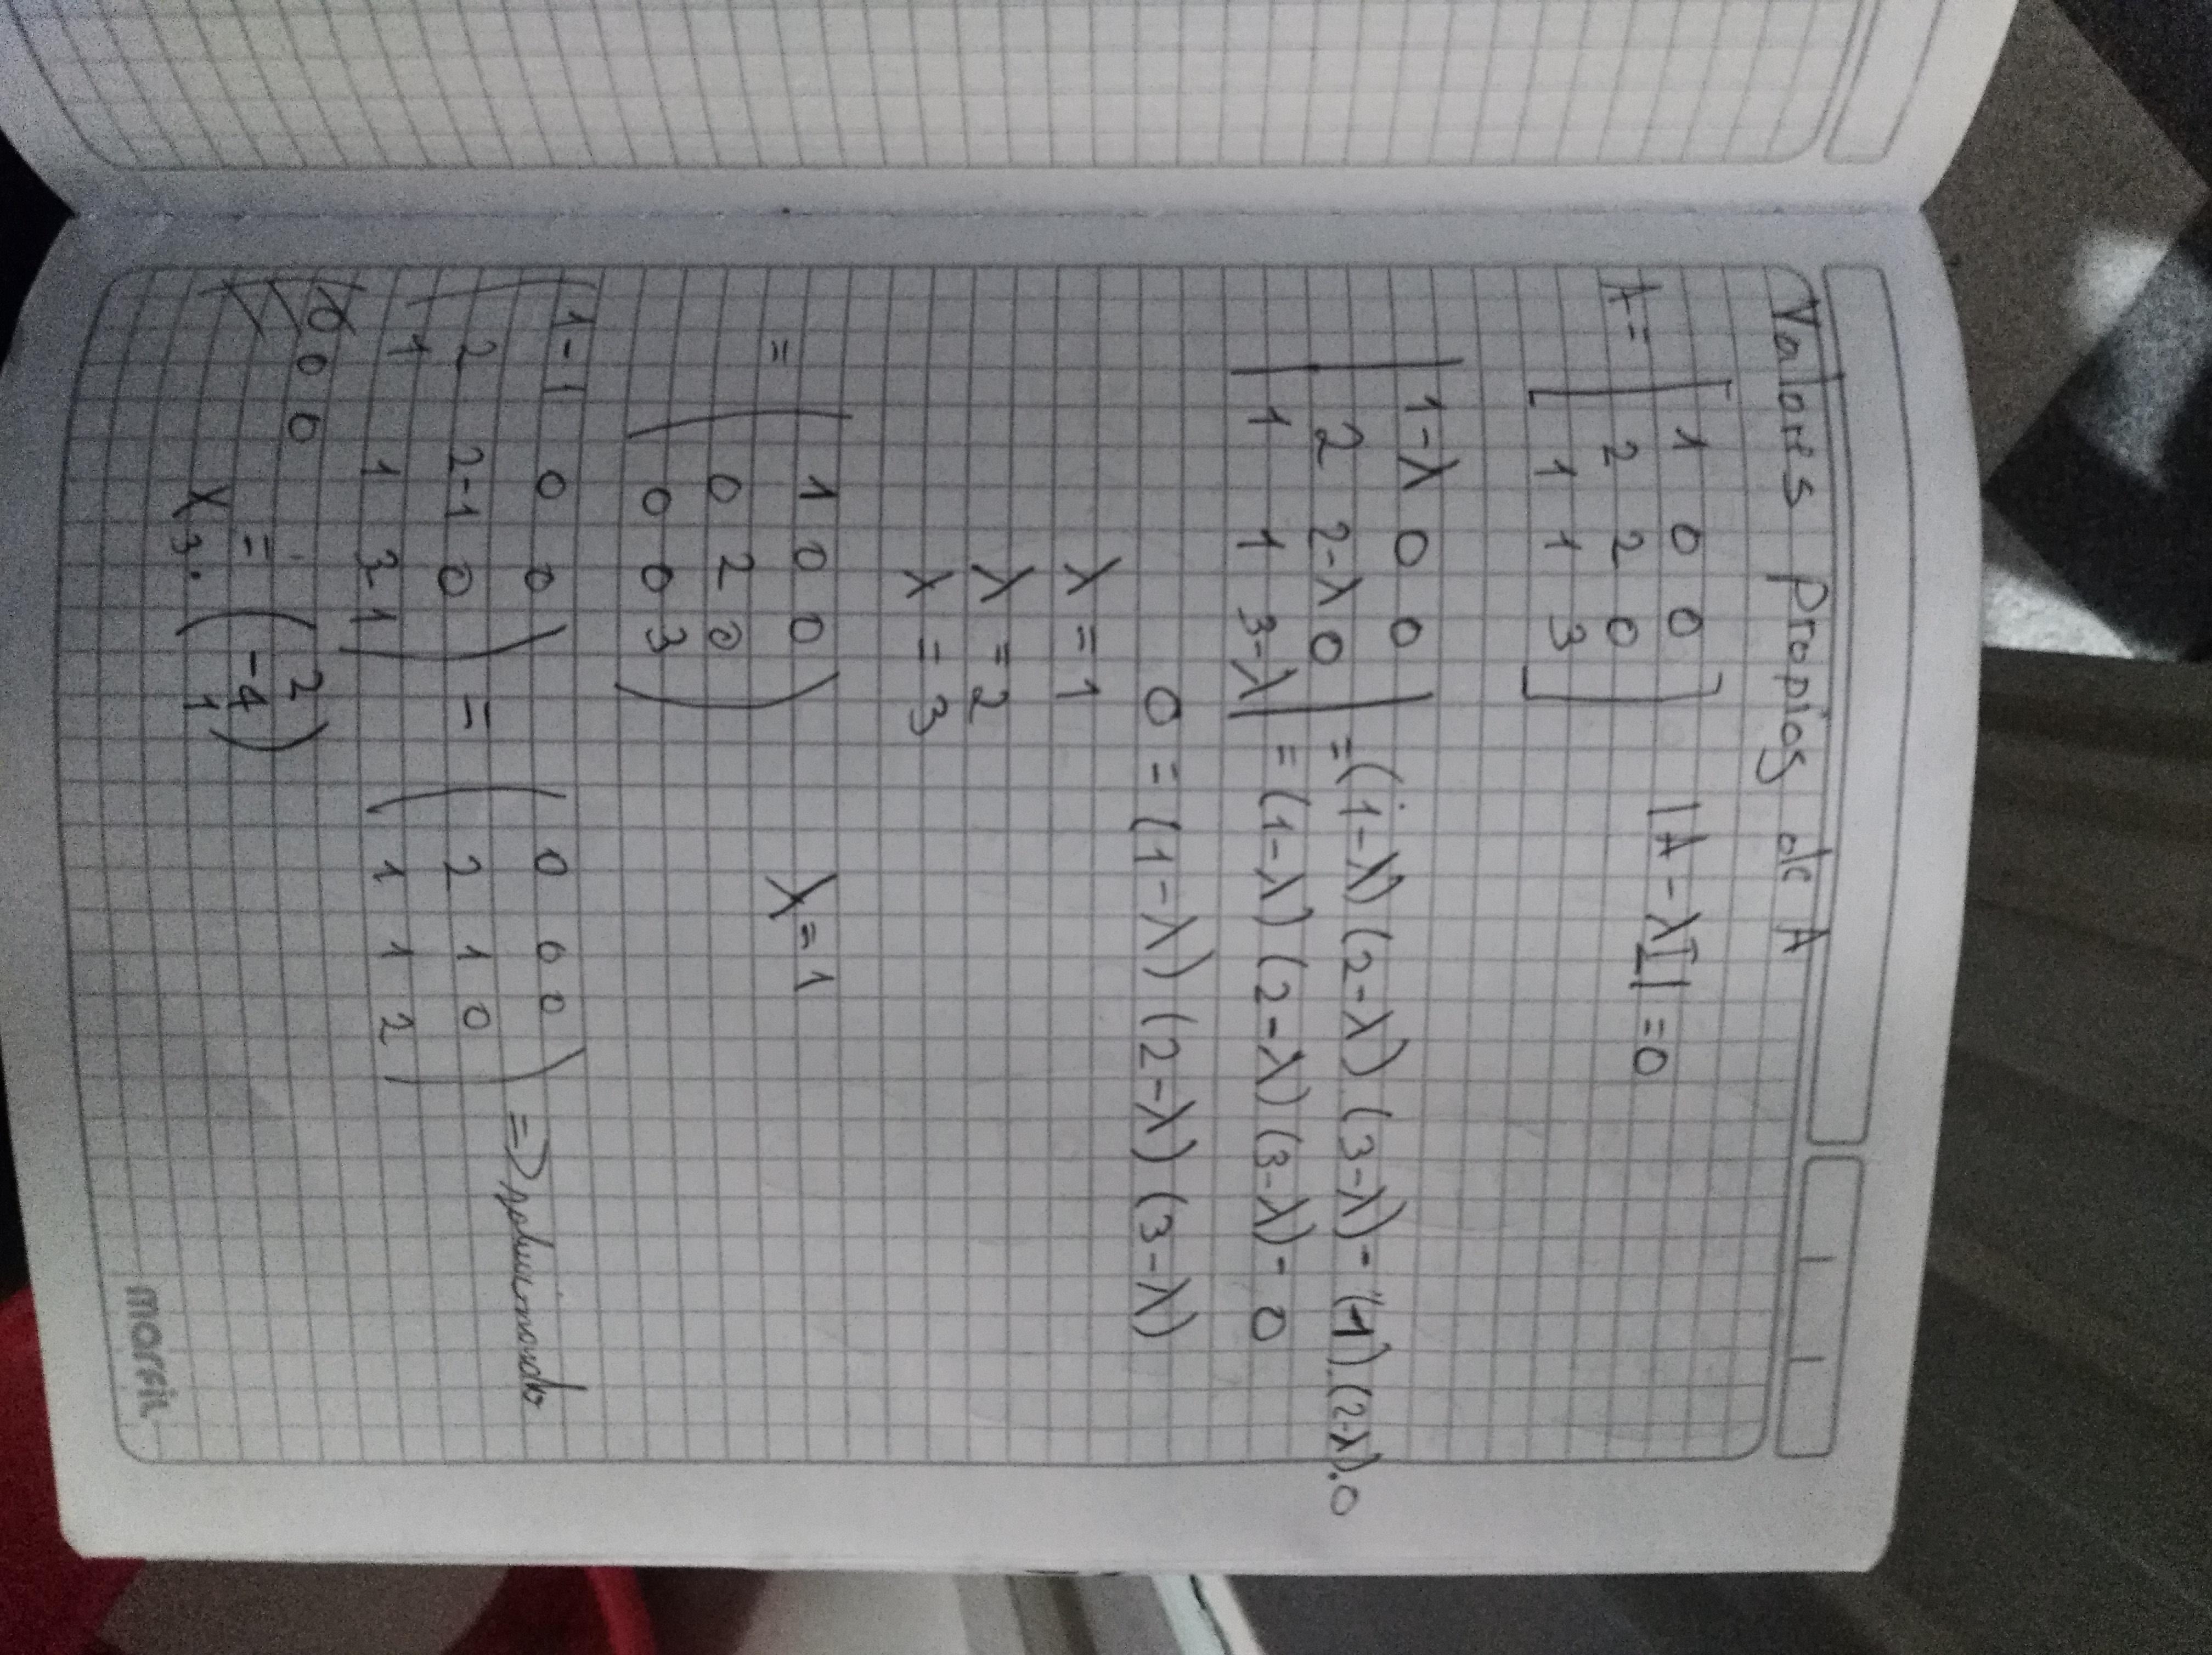 Valores Propios de A
A = [ 1 0 0
2 2 0
1 1 3 ] |A - λI| = 0
| 1-λ 0 0
2 2-λ 0
1 1 3-λ | = (1-λ) (2-λ) (3-λ) - (1).(2-λ).0
= (1-λ) (2-λ) (3-λ) - 0
0 = (1-λ) (2-λ) (3-λ)
λ = 1
λ = 2
λ = 3
= ( 1 0 0
0 2 0
0 0 3 ) λ = 1
( 1-1 0 0
2 2-1 0
1 1 3-1 ) = ( 0 0 0
2 1 0
1 1 2 ) =>
0 0 0
X3. = ( 2
-4
1 )
Marfil